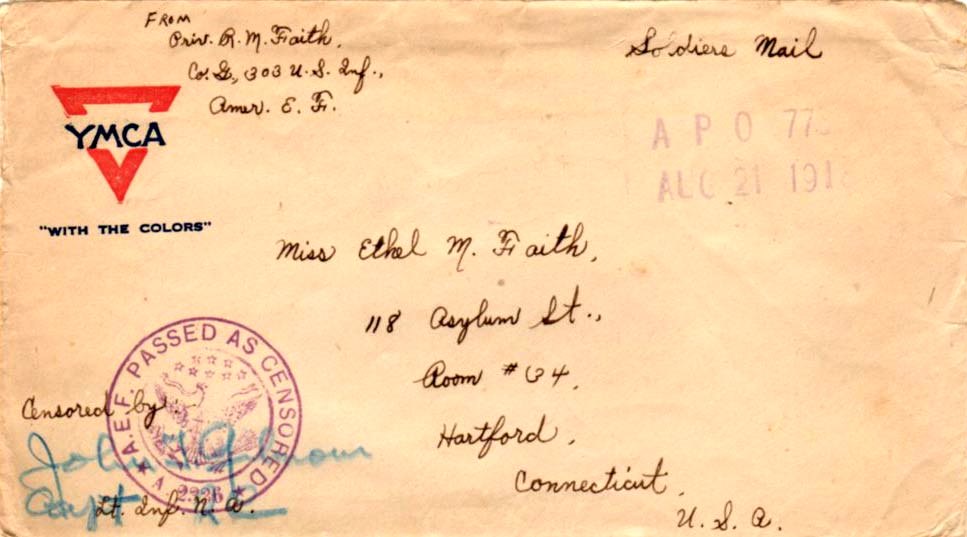 FROM
Priv. R. M. Faith,
Co. G, 303 U. S. Inf.,
Amer. E. F.
Soldiers Mail
YMCA
"WITH THE COLORS"
A P O 77
AUG 21 191
Miss Ethel M. Faith,
118 Asylum St.,
Room # 34,
Hartford,
Connecticut,
U. S. A.
A.E.F. PASSED AS CENSORED
A 2326
Censored by
John
Capt
Lt. Inf. N. A.